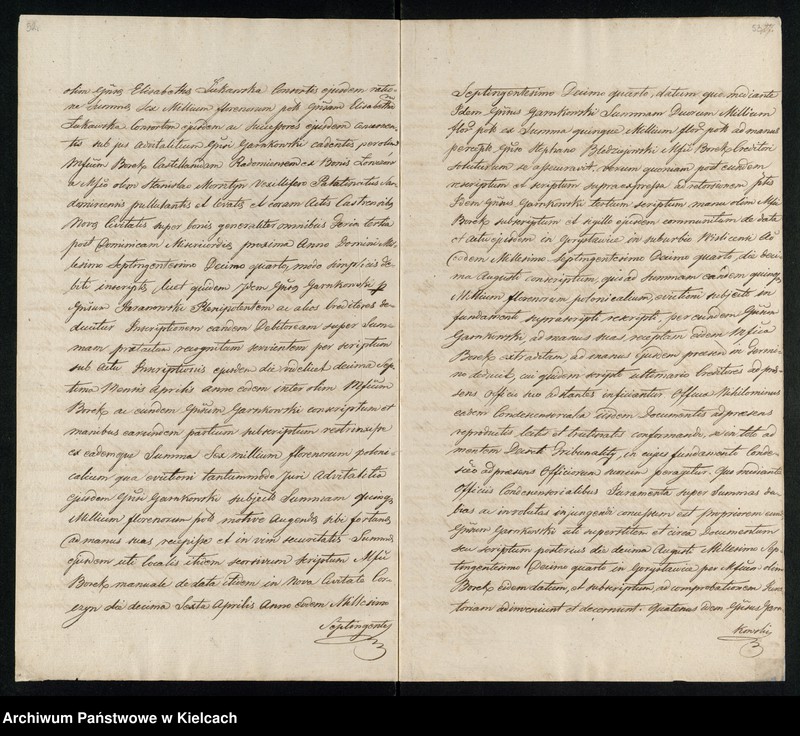 olim Gnes Elisabethæ Lukawska Consortis ejusdem ratio-
ne Summæ Sex Millium florenorum pol: Gnsam Elisabetha
Lukawska Consortem ejusdem ac Successores ejusdem concernen-
tis sub jus Advitalitium Gnsi Garnkowski cadentis per olim
Mficum Borek Castellanum Radomiensem ex Bonis
a Mfco olim Stanislao Morsztyn Vexillifero Palatinatus San-
domiriensis pullulantis et levatis et coram Actis Castrensibus
Novæ Civitatis super bonis generaliter omnibus Feria tertia
post Dominicam Misericordiæ proxima Anno Domini Mil-
lesimo Septingentesimo Decimo quarto, modo simplicis de-
biti inscriptæ, licet quidem idem Gnsus Garnkowski p
Gnsum Taranowski Plenipotentem ac alios Creditores de-
ducitur Inscriptionem eandem Debitoream super Sum-
mam prætactam recognitam servientem per scriptum
sub Actu Inscriptionis ejusdem die videlicet decima Sep-
tima Mensis Aprilis anno eodem inter olim Mficum
Borek ac eundem Gnsum Garnkowski conscriptum et
manibus earundem partium subscriptum restrinxisse
ex eademque Summa Sex millium florenorum poloni-
calium qua evictioni tantummodo juri Advitalitio
ejusdem Gnsi Garnkowski subjecta Summam quinque
Millium florenorum pol: motivo Augendæ sibi fortunæ
ad manus suas recepisse et in vim securitatis Summæ
ejusdem uti localis itidem seorsivum scriptum Mfci
Borek manuale de data itidem in Nova Civitate Kor-
czyn die decima Sexta Aprilis Anno eodem Millesimo
Septingente
Septingentesimo Decimo quarto, datum quo mediante
Idem Gnsus Garnkowski Summam Duorum Millium
flor: pol: ex Summa quinque Millium flor: pol: ad manus
percepta Gnso Stephano Bledzojewski Mfci Borek Creditori
soluturum se asseuravit, verum quoniam post eundem
rescriptum ac scriptum supraexpressa ad retorsionem
Idem Gnsus Garnkowski tertium scriptum manu olim Mfci
Borek subscriptum et sigillo ejusdem communitum de data
et actu ejusdem in Gorysławice in suburbio Wislicensi An
Eodem Millesimo Septingentesimo Decimo quarto, die deci-
ma Augusti conscriptum, qui ad Summam eandem quinque
Millium florenorum polonicalium, evictioni subjecta in
fundamento suprascripti rescripti per eundem Gnsum
Garnkowski, ad manus suas, receptam eidem Mfico
Borek extraditam, ad manus ejusdem præsens in Termi-
no deducit, cui quidem scripto ulteriorio Creditores ad præ-
sens Officii hic citantes inficiantur Officia Nihilominus
eadem Condescensorialia eisdem Documentis ad præsens
reproductis lectis et trutinatis conformando, se in toto ad
mentem Decreti Tribunalitii, in cujus fundamento Conde-
ad præsens Officiorum suorum peragitur. Quo mediante
Officiis Condescensorialibus Juramenta super Summas du-
bias ac involutas injungendi concessum est propriorem eun
Gnsum Garnkowski uti superstitem et circa Documentum
seu scriptum posterius die decima Augusti Millesimo Sep-
tingentesimo Decimo quarto in Gorysławice per Mficum olim
Borek eidem datum, et subscriptum, ad comprobationem Jura-
toriam adinveniunt et decernunt. Quatenus idem Gnsus Garn
kowski
Archiwum Państwowe w Kielcach